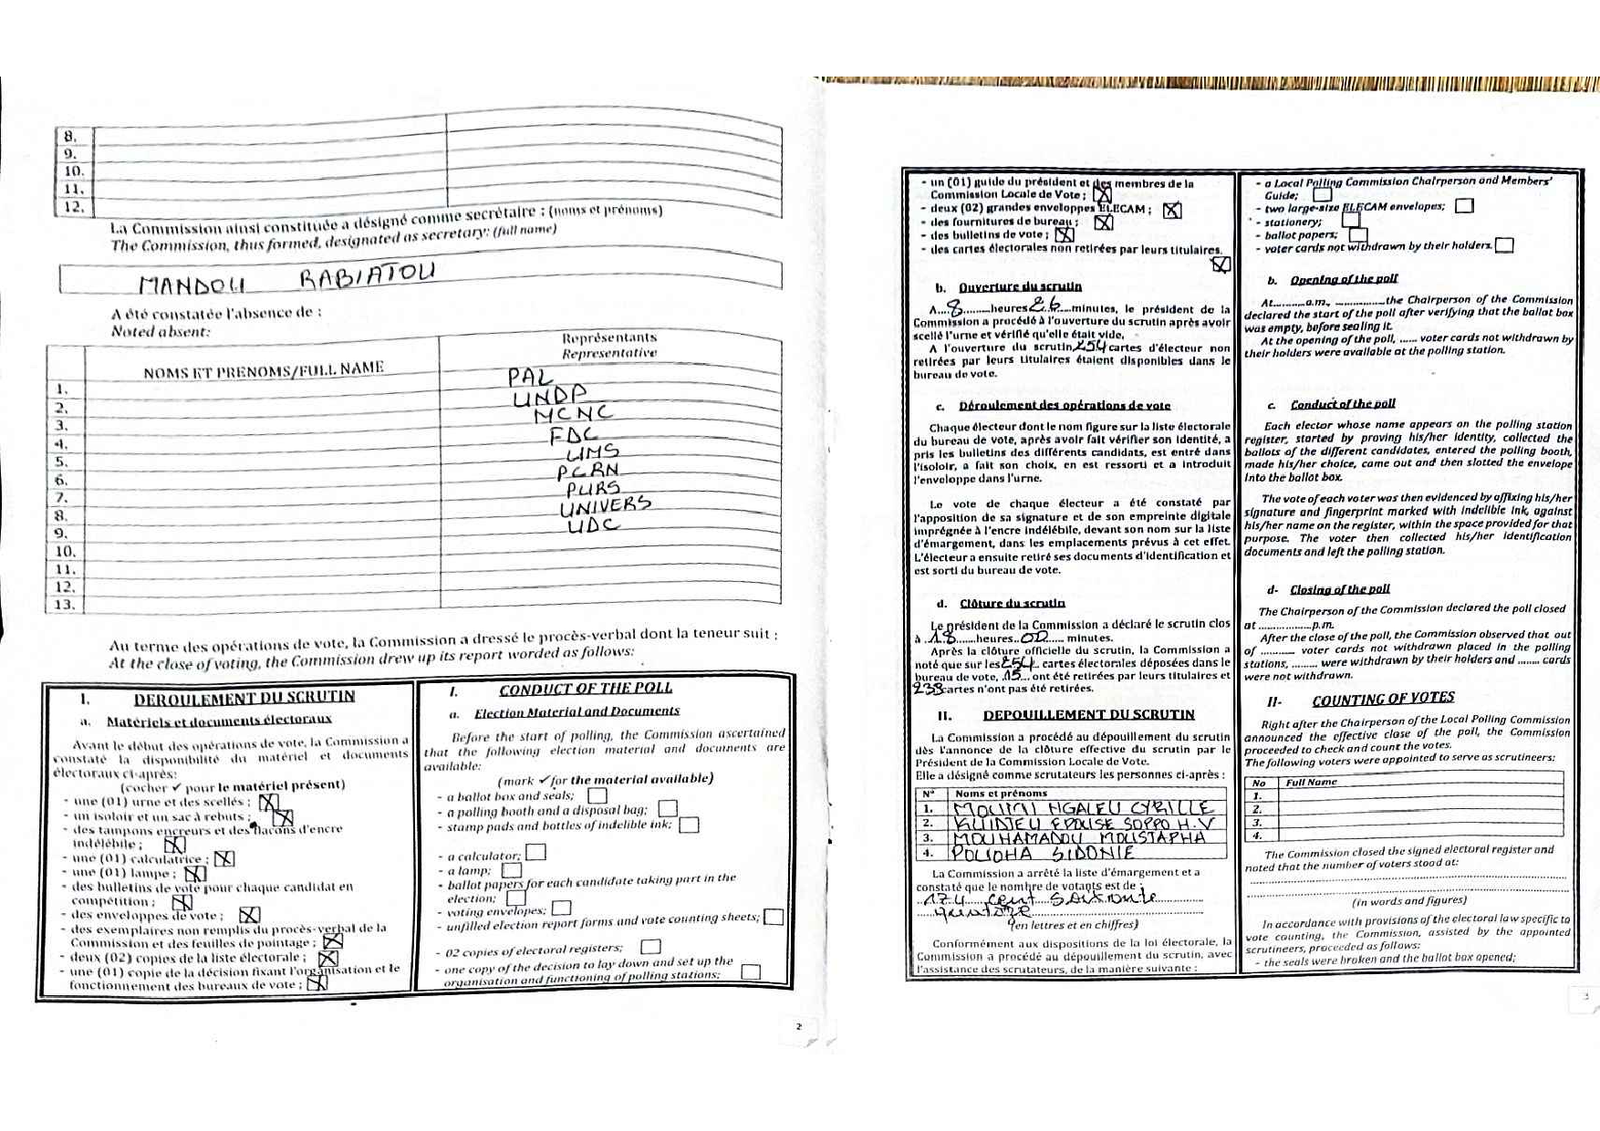 8.
9.
10.
11.
12.
La Commission ainsi constituée a désigné comme secrétaire : (noms et prénoms)
The Commission, thus formed, designated as secretary: (full name)
MANDOU RABIATOU
A été constatée l'absence de :
Noted absent:
NOMS ET PRENOMS/FULL NAME
Représentants
Representative
1. PAL
2. UNDP
3. MCNC
4. FDC
5. UMS
6. PCRN
7. PURS
8. UNIVERS
9. UDC
10.
11.
12.
13.
Au terme des opérations de vote, la Commission a dressé le procès-verbal dont la teneur suit :
At the close of voting, the Commission drew up its report worded as follows:
I. DEROULEMENT DU SCRUTIN
a. Matériels et documents électoraux
Avant le début des opérations de vote, la Commission a
constaté la disponibilité du matériel et documents
électoraux ci-après:
(cocher ✓ pour le matériel présent)
- une (01) urne et des scellés ; ☒
- un isoloir et un sac à rebuts ; ☒
- des tampons encreurs et des flacons d'encre
indélébile ; ☒
- une (01) calculatrice ; ☒
- une (01) lampe ; ☒
- des bulletins de vote pour chaque candidat en
compétition ; ☒
- des enveloppes de vote ; ☒
- des exemplaires non remplis du procès-verbal de la
Commission et des feuilles de pointage ; ☒
- deux (02) copies de la liste électorale ; ☒
- une (01) copie de la décision fixant l'organisation et le
fonctionnement des bureaux de vote ; ☒
I. CONDUCT OF THE POLL
a. Election Material and Documents
Before the start of polling, the Commission ascertained
that the following election material and documents are
available:
(mark ✓ for the material available)
- a ballot box and seals; ☐
- a polling booth and a disposal bag; ☐
- stamp pads and bottles of indelible ink; ☐
- a calculator; ☐
- a lamp; ☐
- ballot papers for each candidate taking part in the
election; ☐
- voting envelopes; ☐
- unfilled election report forms and vote counting sheets; ☐
- 02 copies of electoral registers; ☐
- one copy of the decision to lay down and set up the
organisation and functioning of polling stations; ☐
2
- un (01) guide du président et des membres de la
Commission Locale de Vote ; ☒
- deux (02) grandes enveloppes ELECAM ; ☒
- des fournitures de bureau ; ☒
- des bulletins de vote ; ☒
- des cartes électorales non retirées par leurs titulaires.
☒
b. Ouverture du scrutin
A....8.......heures 26 minutes, le président de la
Commission a procédé à l'ouverture du scrutin après avoir
scellé l'urne et vérifié qu'elle était vide.
A l'ouverture du scrutin 254 cartes d'électeur non
retirées par leurs titulaires étaient disponibles dans le
bureau de vote.
c. Déroulement des opérations de vote
Chaque électeur dont le nom figure sur la liste électorale
du bureau de vote, après avoir fait vérifier son identité, a
pris les bulletins des différents candidats, est entré dans
l'isoloir, a fait son choix, en est ressorti et a introduit
l'enveloppe dans l'urne.
Le vote de chaque électeur a été constaté par
l'apposition de sa signature et de son empreinte digitale
imprégnée à l'encre indélébile, devant son nom sur la liste
d'émargement, dans les emplacements prévus à cet effet.
L'électeur a ensuite retiré ses documents d'identification et
est sorti du bureau de vote.
d. Clôture du scrutin
Le président de la Commission a déclaré le scrutin clos
à .18......heures..00...... minutes.
Après la clôture officielle du scrutin, la Commission a
noté que sur les 254 cartes électorales déposées dans le
bureau de vote, .15... ont été retirées par leurs titulaires et
239 cartes n'ont pas été retirées.
II. DEPOUILLEMENT DU SCRUTIN
La Commission a procédé au dépouillement du scrutin
dès l'annonce de la clôture effective du scrutin par le
Président de la Commission Locale de Vote.
Elle a désigné comme scrutateurs les personnes ci-après :
N° Noms et prénoms
1. NGALEU CYRILLE
2. EPOUSE SOPPO H.V
3. MOUHAMADOU MOUSTAPHA
4. SIDONIE
La Commission a arrêté la liste d'émargement et a
constaté que le nombre de votants est de :
174 cent soixante
quatorze
(en lettres et en chiffres)
Conformément aux dispositions de la loi électorale, la
Commission a procédé au dépouillement du scrutin, avec
l'assistance des scrutateurs, de la manière suivante :
- a Local Polling Commission Chairperson and Members'
Guide; ☐
- two large-size ELECAM envelopes; ☐
- stationery; ☐
- ballot papers; ☐
- voter cards not withdrawn by their holders. ☐
b. Opening of the poll
At..........a.m., ...............the Chairperson of the Commission
declared the start of the poll after verifying that the ballot box
was empty, before sealing it.
At the opening of the poll, ...... voter cards not withdrawn by
their holders were available at the polling station.
c. Conduct of the poll
Each elector whose name appears on the polling station
register, started by proving his/her identity, collected the
ballots of the different candidates, entered the polling booth,
made his/her choice, came out and then slotted the envelope
into the ballot box.
The vote of each voter was then evidenced by affixing his/her
signature and fingerprint marked with indelible ink, against
his/her name on the register, within the space provided for that
purpose. The voter then collected his/her identification
documents and left the polling station.
d- Closing of the poll
The Chairperson of the Commission declared the poll closed
at .................p.m.
After the close of the poll, the Commission observed that out
of .......... voter cards not withdrawn placed in the polling
stations, ........ were withdrawn by their holders and ....... cards
were not withdrawn.
II- COUNTING OF VOTES
Right after the Chairperson of the Local Polling Commission
announced the effective close of the poll, the Commission
proceeded to check and count the votes.
The following voters were appointed to serve as scrutineers:
No Full Name
1.
2.
3.
4.
The Commission closed the signed electoral register and
noted that the number of voters stood at:
(in words and figures)
In accordance with provisions of the electoral law specific to
vote counting, the Commission, assisted by the appointed
scrutineers, proceeded as follows:
- the seals were broken and the ballot box opened;
3